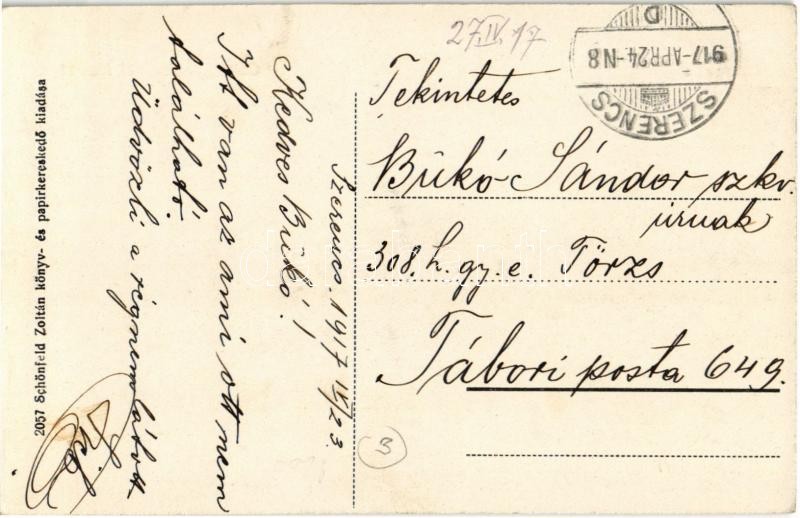 27.IV.17
SZERENCS
917-APR24-N8
D
Tekintetes
Bükó Sándor szkv.
úrnak
308. h. gy. e. Törzs
Tábori posta 649.
3
Szerencs, 1917 IV/23.
Kedves Bükó!
Itt van az ami ott nem
található.
Üdvözli a régnemlátott
2057 Schönfeld Zoltán könyv- és papirkereskedő kiadása